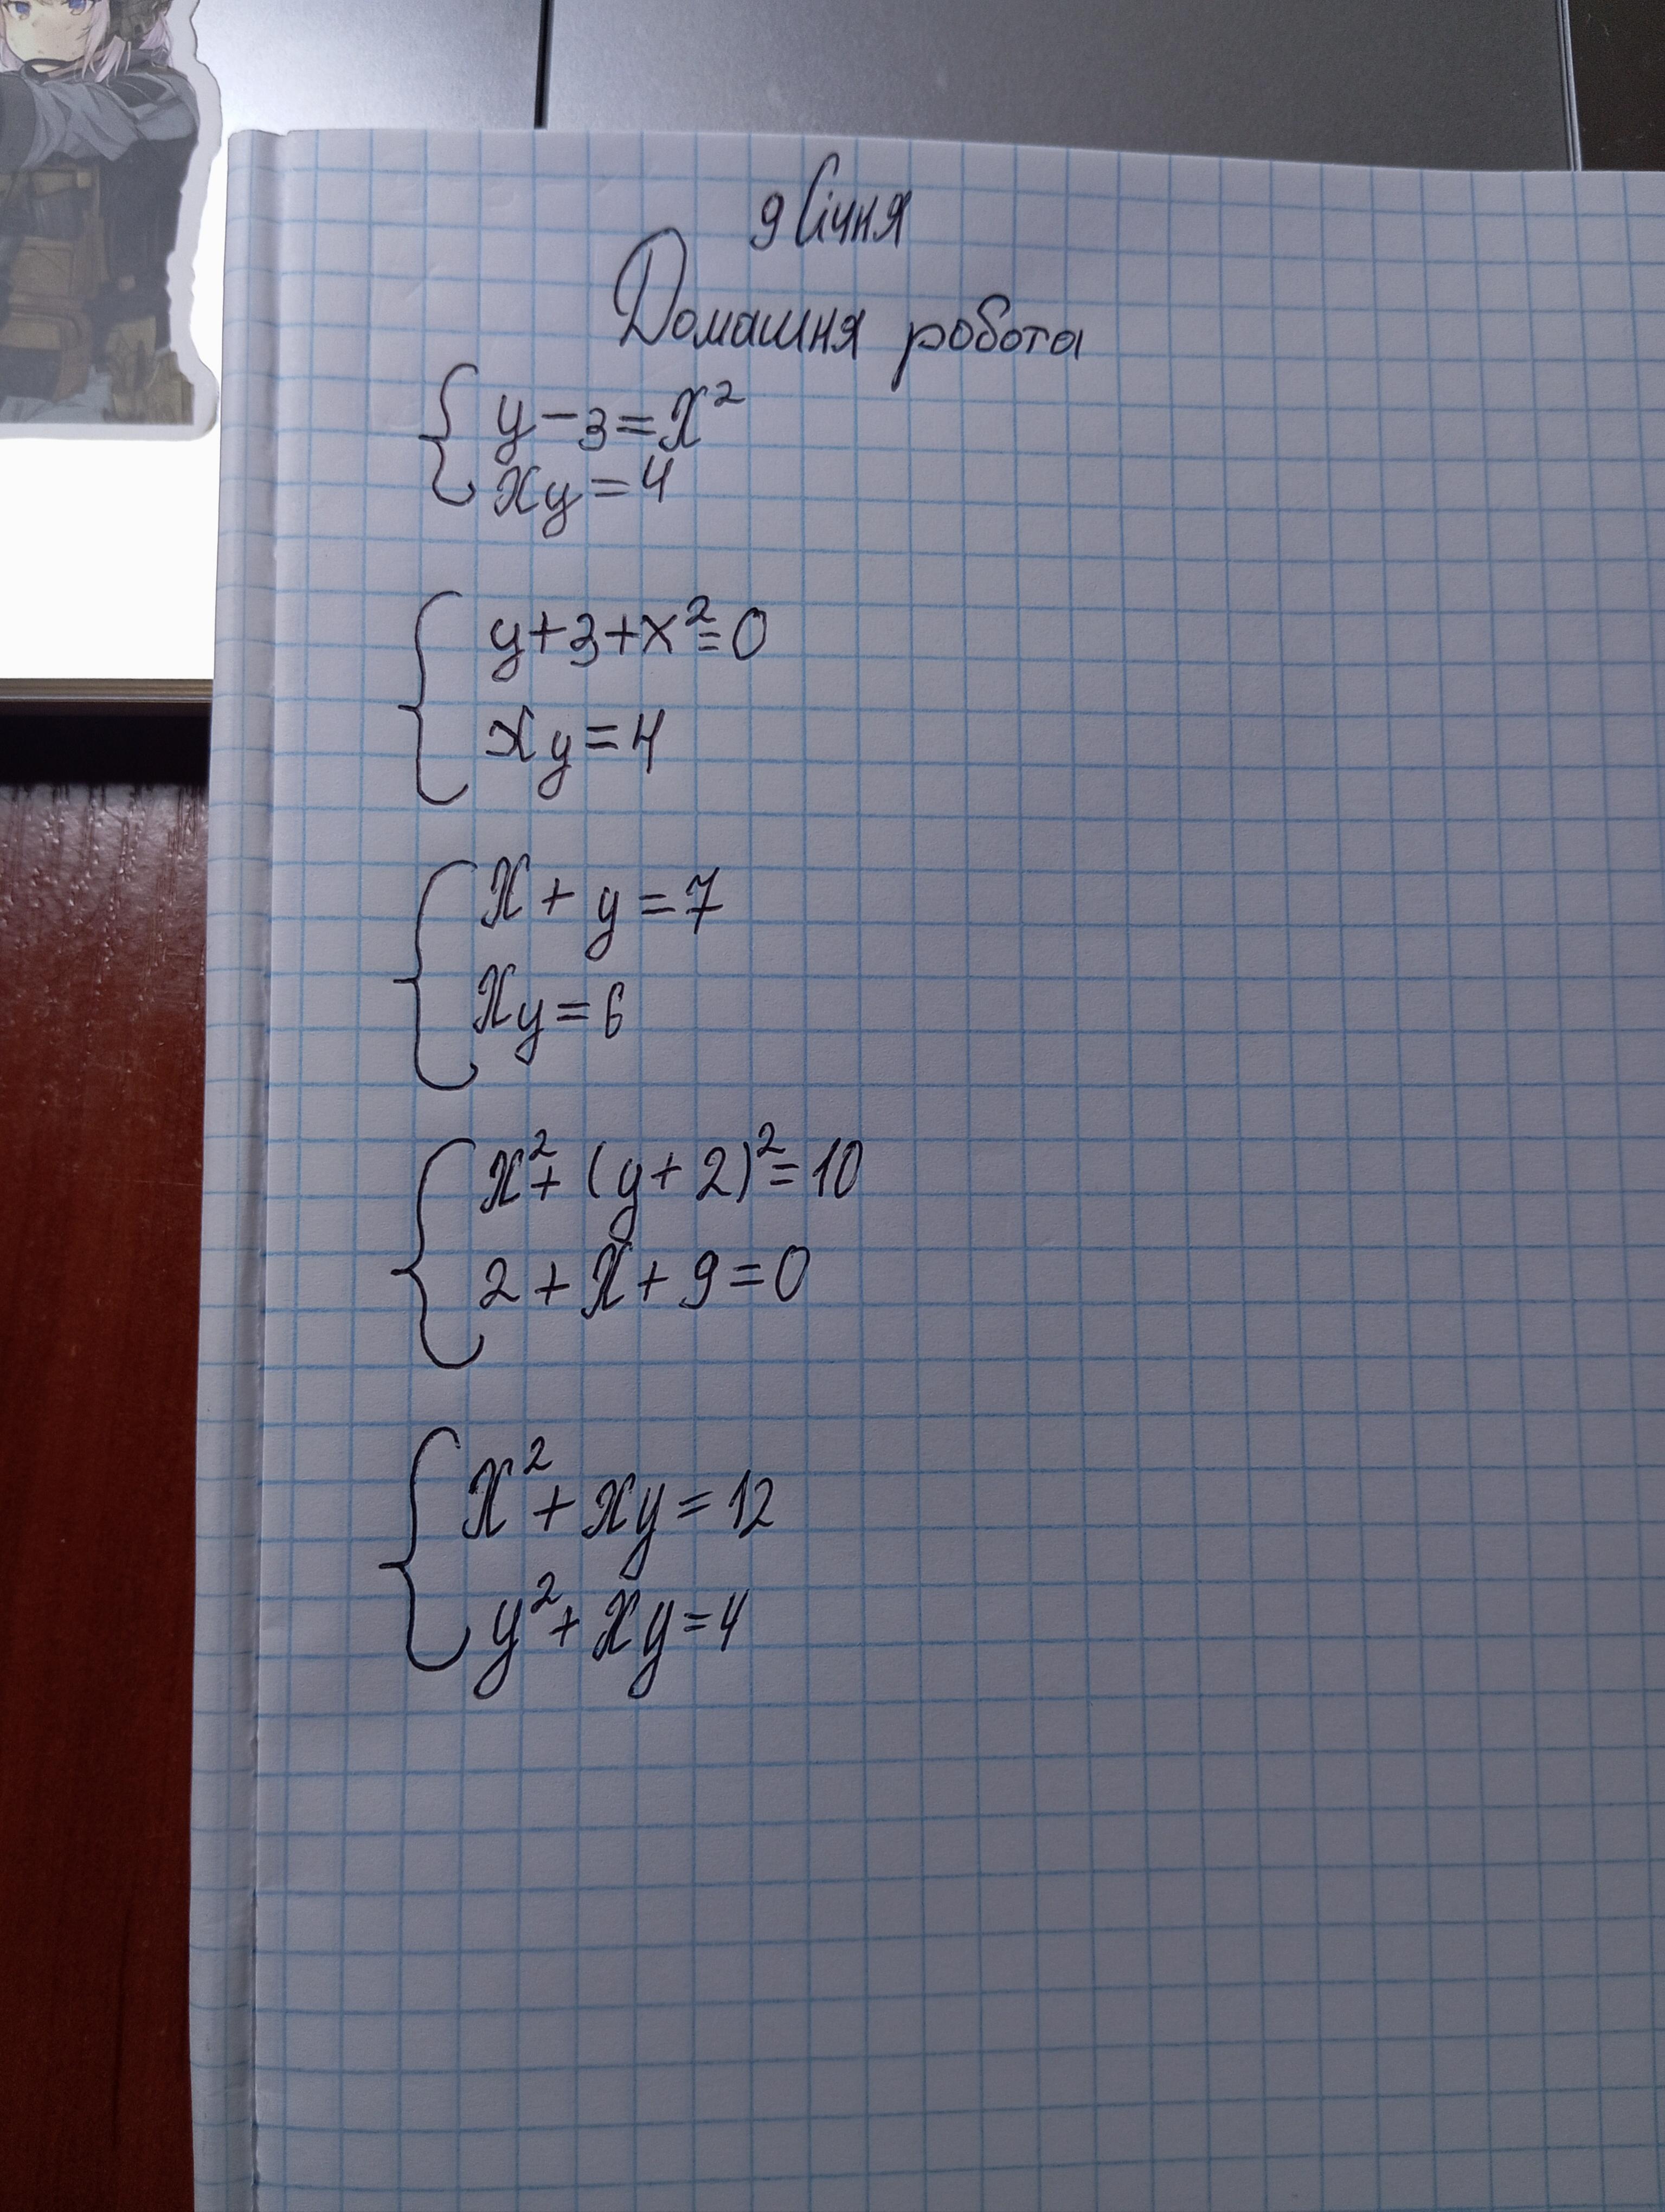 9 Січня
Домашня робота
y-3=x²
xy=4
y+3+x²=0
xy=4
x+y=7
xy=6
x²+(y+2)²=10
2+x+9=0
x²+xy=12
y²+xy=4